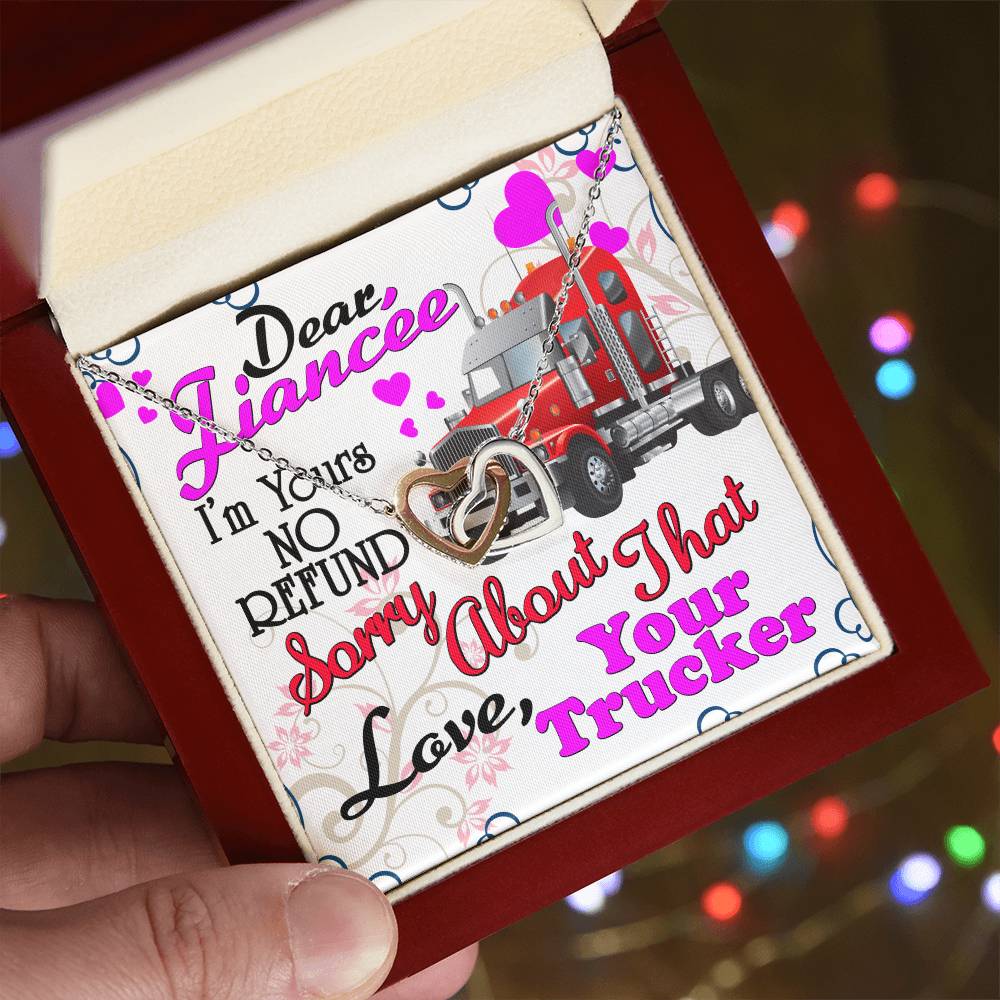 Dear,
Fiancée
I'm Yours
NO
REFUND
Sorry About That
Love, Your
Trucker